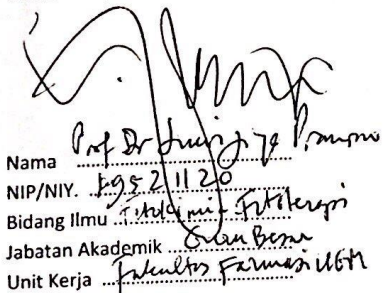 Nama Prof Dr Suwijiyo Pramono
NIP/NIY. 1952 11 20
Bidang Ilmu Fitokimia - Fitoterapi
Jabatan Akademik Guru Besar
Unit Kerja Fakultas Farmasi UGM